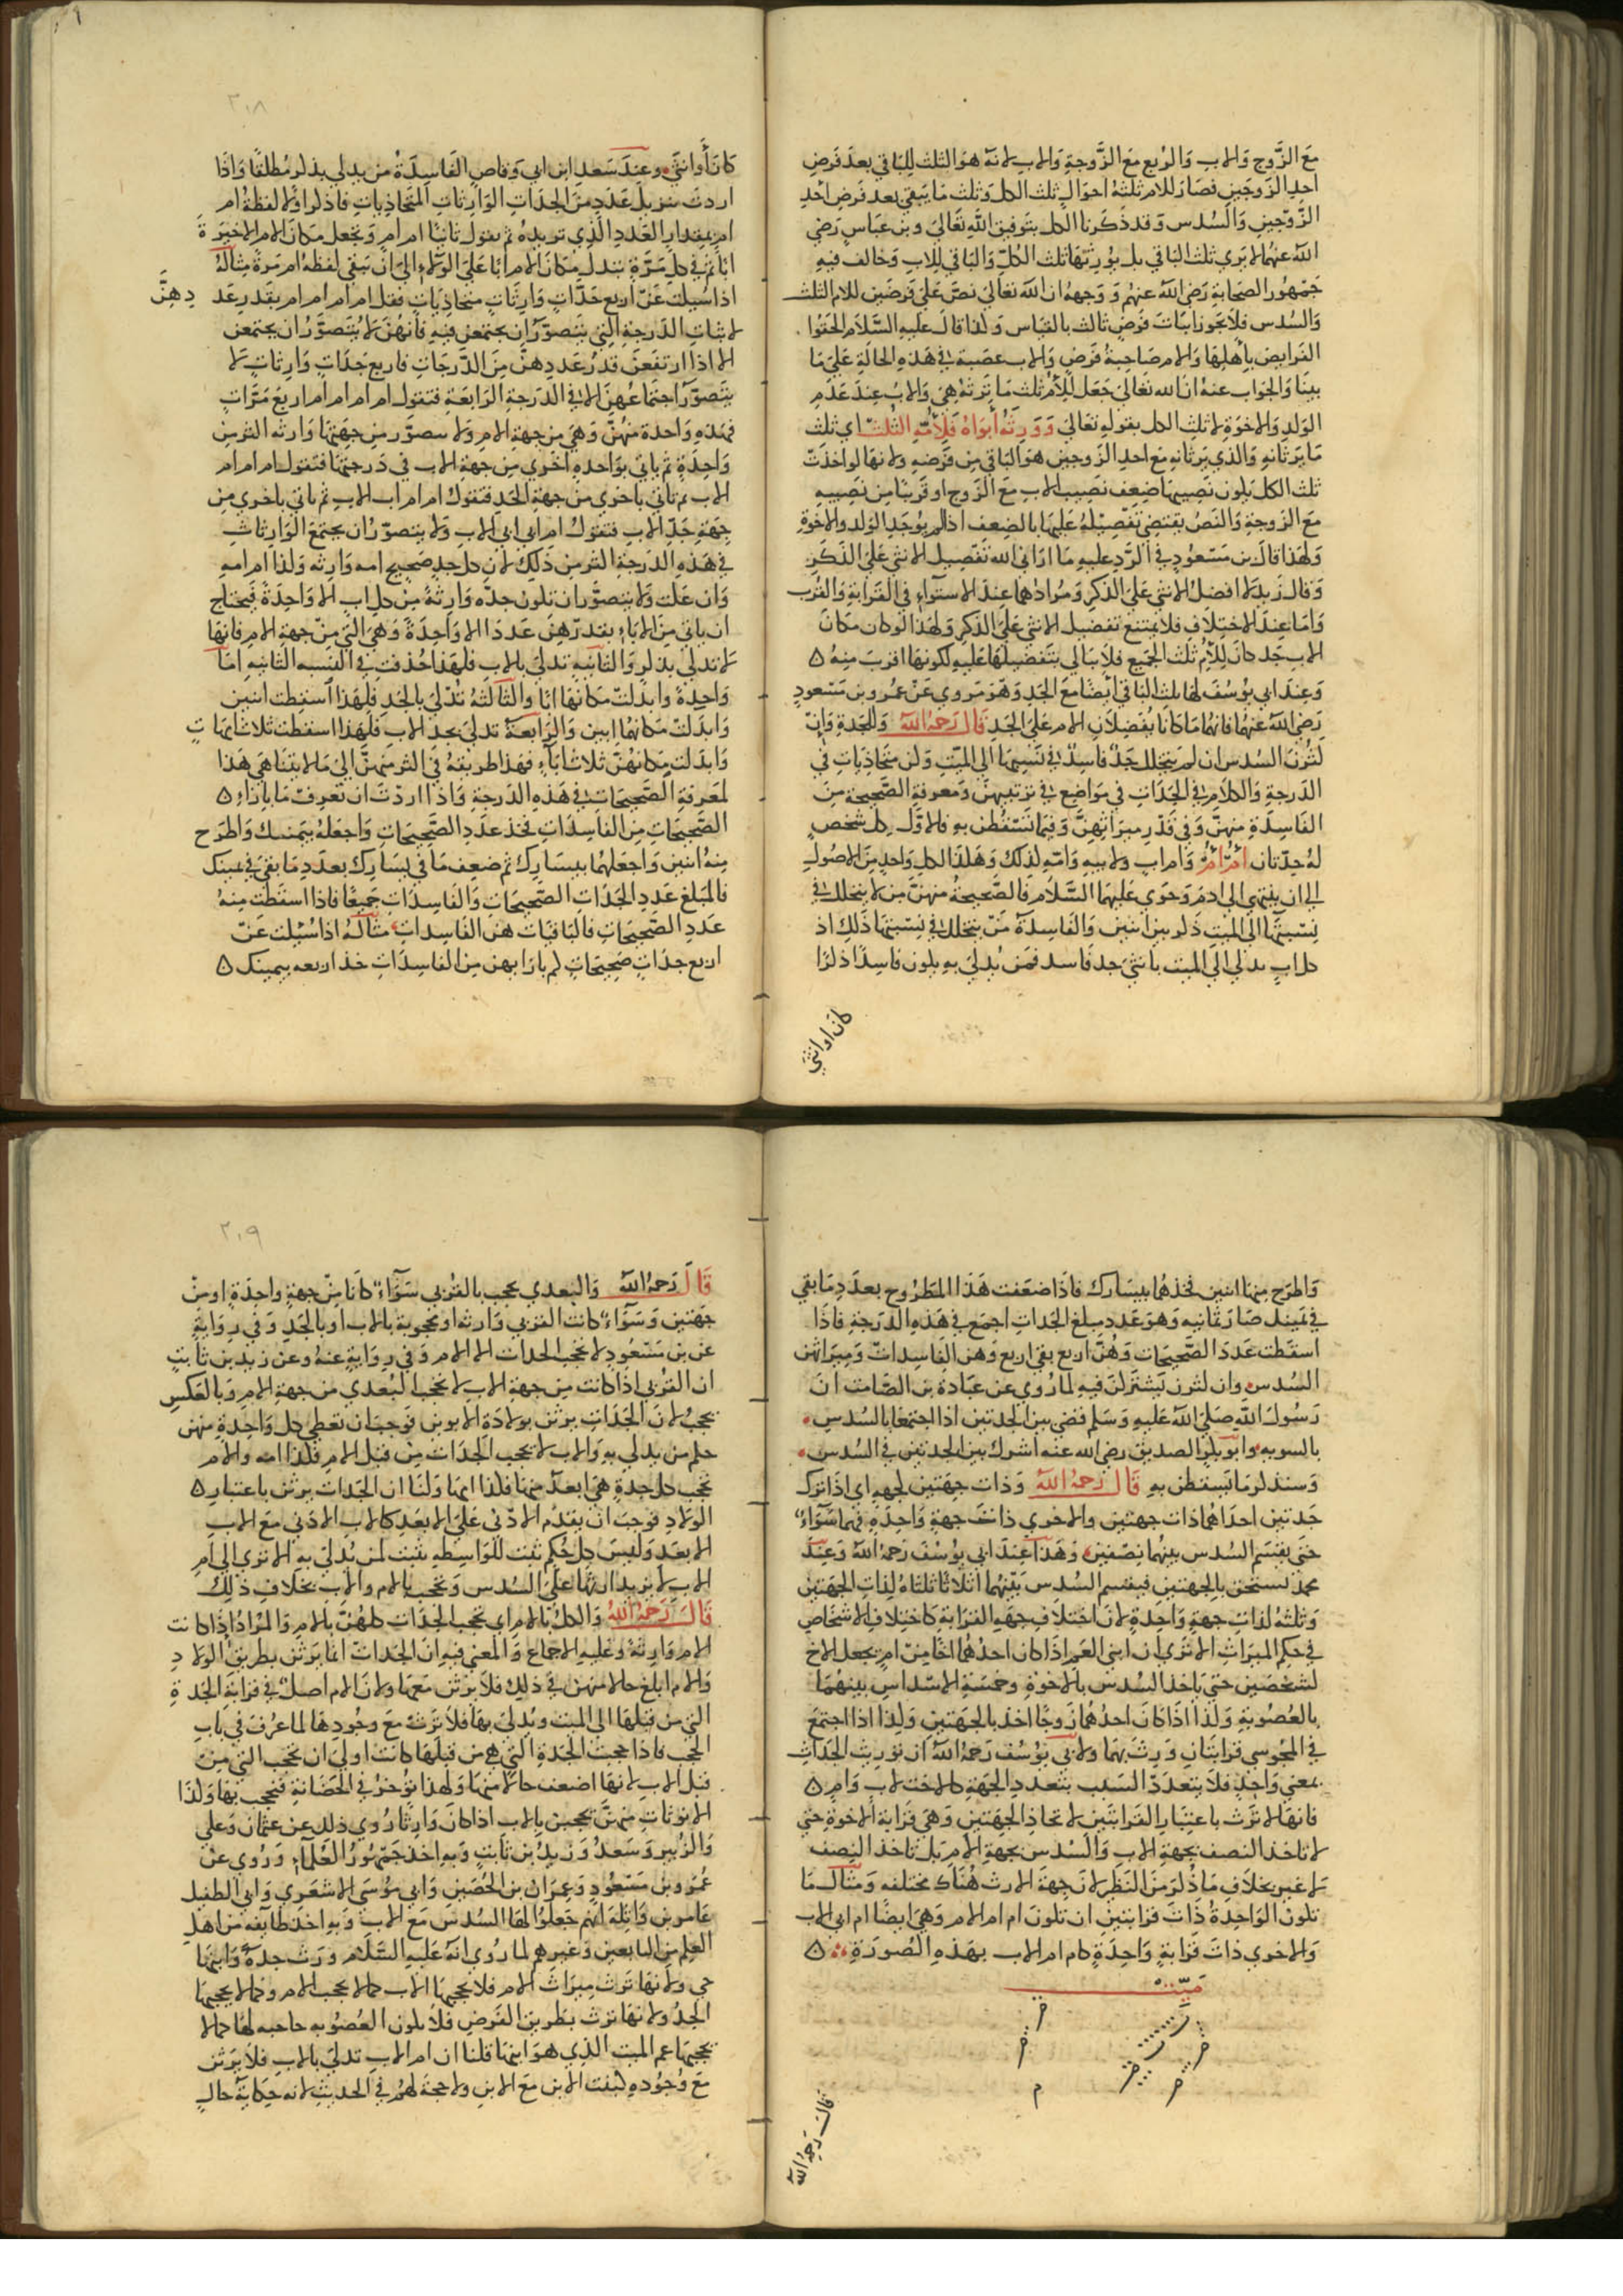 مع الزَّوج والاب والربع مع الزَّوجةِ والاب لانه هو الثلث للباقي بعد فرض
احدِ الزوجين فصار للام ثلثهُ احوالٍ ثلث الكل وثلث ما يبقي بعد فرض احدِ
الزوجين والسدس وقد ذكرنا الكل بتوفيق الله تعالي وبن عباس رضي
الله عنهما لا يري ثلث الباقي بل يورثها ثلث الكلِ والباقي للاب وخالف فيهِ
جمهور الصحابةِ رضي الله عنهم ووجهه ان الله تعالي نص علي فرضين للام الثلث
والسدس فلا يجوز اثبات فرضٍ ثالث بالقياس ولنا قال عليه السلام الحقوا
الفرايض بأهلها والام صاحبة فرضٍ والاب عصبة في هذه الحالة علي ما
بينا والجواب عنه ان الله تعالي جعل للام ثلث ما ترثه هي والاب عند عدم
الولد والاخوة لا ثلث الكل بقوله تعالي وورثه أبواه فلأمه الثلث اي ثلث
ما يرثانه والذي يرثانه مع احد الزوجين هو الباقي من فرضه ولانها لو اخذت
ثلث الكل يكون نصيبها ضعف نصيب الاب مع الزوج او قريبا من نصيبه
مع الزوجة والنص يقتضي تفضيله عليها بالضعف اذا لم يوجد الولد والاخوة
ولهذا قال بن مسعود في الرد عليه ما اراني الله تفضيل الانثي علي الذكر
وقال زيد لا افضل الانثي علي الذكر ومرادهما عند الاستواء في القرابة والقرب
واما عند الاختلاف فلا يمتنع تفضيل الانثي علي الذكر ولهذا لو كان مكان
الاب جد كان للام ثلث الجميع فلا يبالي بتفضيلها عليه لكونها اقرب منه
وعند ابي يوسف لها ثلث الباقي أيضا مع الجد وهو مروي عن عمر وبن مسعود
رضي الله عنهما فانهما ما كانا يفضلان الام علي الجد قال رحمه الله وللجدة وان
كثرن السدس ان لم يتخلل جد فاسد في نسبتها الي الميت وكن متحاذيات في
الدرجة والكلام في الجدات في مواضع في ترتيبهن ومعرفة الصحيحة من
الفاسدة منهن وفي قدر ميراثهن وفيما تسقطن به فالاول كل شخص
له جدتان ام ام وام اب ولابيه وامه لذلك وهكذا لكل واحد من الاصول
الي ان ينتهي الي ادم وحوي عليهما السلام فالصحيحة منهن من لا يتخلل في
نسبتها الي الميت ذكر بين انثيين والفاسدة من يتخلل في نسبتها ذلك اذ
كل اب يدلي الي الميت بانثي جد فاسد فمن يدلي به يكون فاسدا ذكرا
كان او انثي
٢٠٨
كان أو انثي وعند سعد ابن ابي وقاص الفاسدة من يدلي بذكر مطلقا واذا
اردت تنزيل عدد من الجدات الوارثات المتحاذيات فاذكر اولا لفظة ام
ام بمقدار العدد الذي تريده ثم تقول ثانيا ام ام وتجعل مكان الام الاخيرة
ابا ثم في كل مرة تبدل مكان الام ابا علي الولاء الي ان تبقي لفظه ام مرة مثاله
اذا سيلت عن اربع جدات وارثات متحاذيات فقل ام ام ام ام بقدر عددهن
لاثبات الدرجة التي يتصور ان يجتمعن فيه فانهن لا يتصور ان يجتمعن
الا اذا ارتفعن قدر عددهن من الدرجات فاربع جدات وارثات لا
يتصور اجتماعهن الا في الدرجة الرابعة فتقول ام ام ام ام اربع مرات
فهذه واحدة منهن وهي من جهة الام ولا يتصور من جهتها وارثه اكثر من
واحدة ثم ياتي بواحده اخري من جهة الاب في درجتها فتقول ام ام ام
الاب ثم تاتي باخري من جهة الجد فتقول ام ام اب الاب ثم ياتي باخري من
جهة جد الاب فتقول ام ابي ابي الاب ولا يتصور ان يجتمع الوارثات
في هذه الدرجة اكثر من ذلك لان كل جد صحيح امه وارثه ولذا ام امه
وان علت ولا يتصور ان تكون جده وارثة من كل اب الا واحدة فيحتاج
ان ياتي من الاباء بقدرهن عددا الا واحدة وهي التي من جهة الام فانها
لا تدلي بذكر والثانيه تدلي بالاب فلهذا حذفت في النسبه الثانيه اما
واحدة وابدلت مكانها ابا والثالثه تدلي بالجد فلهذا اسقطت اثنين
وابدلت مكانهما ابين والرابعة تدلي بجد الاب فلهذا اسقطت ثلاث امهات
وابدلت مكانهن ثلاث اباء فهذا طريقه في اكثر منهن الي ما لا يتناهي هذا
لمعرفة الصحيحات في هذه الدرجة واذا اردت ان تعرف ما بازاء
الصحيحات من الفاسدات فخذ عدد الصحيحات واجعله بيمينك واطرح
منه اثنين واجعلهما بيسارك ثم ضعف ما في يسارك بعدد ما بقي في يمينك
فالمبلغ عدد الجدات الصحيحات والفاسدات جميعا فاذا اسقطت منه
عدد الصحيحات فالباقيات هن الفاسدات مثاله اذا سئلت عن
اربع جدات صحيحات لم بازابهن من الفاسدات خذ اربعه بيمينك
واطرح منها اثنين فخذهما بيسارك فاذا ضعفت هذا المطروح بعدد ما بقي
في يمينك صار ثمانيه وهو عدد مبلغ الجدات اجمع في هذه الدرجة فاذا
اسقطت عدد الصحيحات وهن اربع بقي اربع وهن الفاسدات وميراثهن
السدس وان كثرن يشتركن فيه لما روي عن عبادة بن الصامت ان
رسول الله صلي الله عليه وسلم قضي بين الجدتين اذا اجتمعا بالسدس
بالسويه وابو بكر الصديق رضي الله عنه اشرك بين الجدتين في السدس
وسنذكر ما يسقطن به قال رحمه الله وذات جهتين لجهه اي اذا ترك
جدتين احداهما ذات جهتين والاخري ذات جهة واحده فهما سواء
حتي يقسم السدس بينهما نصفين وهذا عند ابي يوسف رحمه الله وعند
محمد تستحق بالجهتين فيقسم السدس بينهما اثلاثا ثلثاه لذات الجهتين
وثلثه لذات جهة واحدة لان اختلاف جهه القرابة كاختلاف الاشخاص
في حكم الميراث الا تري ان ابني العم اذا كان احدهما اخا من ام يجعل الاخ
لشخصين حتي ياخذ السدس بالاخوة وخمسة الاسداس بينهما
بالعصوبة ولذا اذا كان احدهما زوجا اخذ بالجهتين ولذا اذا اجتمع
في المجوسي قرابتان ورث بهما ولابي يوسف رحمه الله ان توريث الجدات
بمعني واحد فلا يتعدد السبب بتعدد الجهة كالاخت لاب وام
فانها لا ترث باعتبار القرابتين لاتحاد الجهتين وهي قرابة الاخوة حتي
لا تاخذ النصف بجهة الاب والسدس بجهة الام بل تاخذ النصف
لا غير بخلاف ما ذكر من النظير لان جهة الارث هناك مختلفه ومثال ما
تكون الواحدة ذات قرابتين ان تكون ام ام الام وهي ايضا ام ابي الاب
والاخري ذات قرابة واحدة كام ام الاب بهذه الصورة
ميت
قال رحمه الله
٢٠٩
قال رحمه الله والبعدي تحجب بالقربي سواء كانا من جهة واحدة او من
جهتين وسواء كانت القربي وارثه او محجوبة بالاب او بالجد وفي رواية
عن بن مسعود لا تحجب الجدات الا الام وفي رواية عنه وعن زيد بن ثابت
ان القربي اذا كانت من جهة الاب لا تحجب البعدي من جهة الام وبالعكس
تحجب لان الجدات يرثن بولادة الابوين فوجب ان تعطي كل واحدة منهن
حكم من يدلي به والاب لا يحجب الجدات من قبل الام فلذا امه والام
تحجب كل جدة هي ابعد منها فلذا امها ولنا ان الجدات يرثن باعتبار
الولاد فوجب ان يقدم الادني علي الابعد كالاب الادني مع الاب
الابعد وليس كل حكم ثبت للواسطه يثبت لمن يدلي به الا تري الي ام
الاب لا يزيد ارثها علي السدس وتحجب بالام والاب بخلاف ذلك
قال رحمه الله والكل بالام اي تحجب الجدات كلهن بالام والمراد اذا كانت
الام وارثه وعليه الاجماع والمعني فيه ان الجدات انما يرثن بطريق الولاد
والام ابلغ حالا منهن في ذلك فلا يرثن معها ولان الام اصل في قرابة الجدة
التي من قبلها الي الميت وتدلي بها فلا ترث مع وجودها لما عرف في باب
الحجب فاذا حجبت الجدة التي هي من قبلها كانت اولي ان تحجب التي من
قبل الاب لانها اضعف حالا منها ولهذا تؤخر في الحضانة فتحجب بها ولذا
الابويات منهن تحجبن بالاب اذا كان وارثا روي ذلك عن عثمان وعلي
والزبير وسعد وزيد بن ثابت وبه اخذ جمهور العلماء وروي عن
عمر وبن مسعود وعمران بن الحصين وابي موسي الاشعري وابي الطفيل
عامر بن واثلة انهم جعلوا لها السدس مع الاب وبه اخذ طايفه من اهل
العلم من التابعين وغيرهم لما روي انه عليه السلام ورث جدة وابنها
حي ولانها ترث ميراث الام فلا يحجبها الاب كما لا يحجب الام وكما لا يحجبها
الجد ولانها ترث بطريق الفرض فلا تكون العصوبه حاجبه لها كما لا
يحجبها عم الميت الذي هو ابنها قلنا ان ام الاب تدلي بالاب فلا يرثن
مع وجوده كبنت الابن مع الابن ولا حجة لهم في الحديث لانه حكاية حال